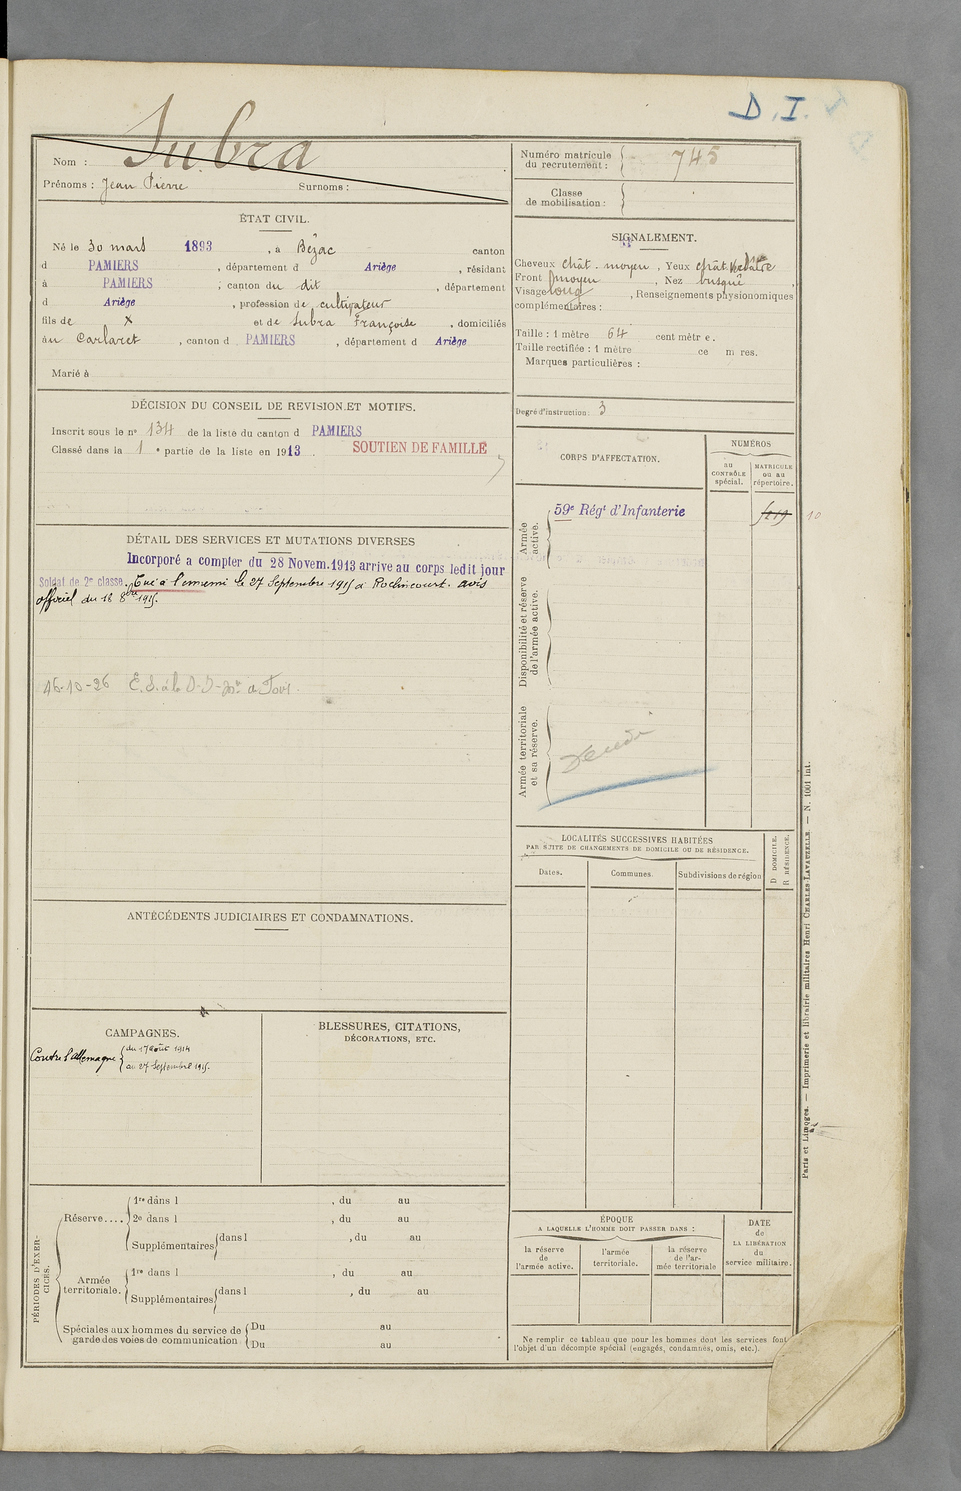 D.I.
Nom : Subra
Prénoms : Jean Pierre Surnoms :
Numéro matricule du recrutement : 745
Classe de mobilisation :
ÉTAT CIVIL.
Né le 30 mars 1893, à Bézac canton
d PAMIERS, département d Ariège, résidant
à PAMIERS, canton du dit, département
d Ariège, profession de cultivateur
fils de X et de Subra Françoise, domiciliés
au Carlaret, canton d PAMIERS, département d Ariège
Marié à
SIGNALEMENT.
Cheveux chât. moyen, Yeux chât. verdâtre
Front moyen, Nez busqué,
Visage long, Renseignements physionomiques
complémentaires :
Taille : 1 mètre 64 centimètre.
Taille rectifiée : 1 mètre ce m res.
Marques particulières :
Degré d'instruction : 3
DÉCISION DU CONSEIL DE REVISION ET MOTIFS.
Inscrit sous le nº 134 de la liste du canton d PAMIERS
Classé dans la 1 e partie de la liste en 1913.
SOUTIEN DE FAMILLE
CORPS D'AFFECTATION.
NUMÉROS
au CONTRÔLE spécial.
MATRICULE ou au répertoire.
Armée active.
59e Régt d'Infanterie
10
Disponibilité et réserve de l'armée active.
Armée territoriale et sa réserve.
DÉTAIL DES SERVICES ET MUTATIONS DIVERSES
Incorporé a compter du 28 Novem. 1913 arrive au corps ledit jour
Soldat de 2e classe. Tué à l'ennemi le 27 Septembre 1915 à Roclincourt. avis
officiel du 18 8bre 1915.
LOCALITÉS SUCCESSIVES HABITÉES
PAR SUITE DE CHANGEMENTS DE DOMICILE OU DE RÉSIDENCE.
Dates.
Communes.
Subdivisions de région
D DOMICILE.
R RÉSIDENCE.
ANTÉCÉDENTS JUDICIAIRES ET CONDAMNATIONS.
CAMPAGNES.
Contre l'Allemagne { du 17 août 1914
au 27 Septembre 1915.
BLESSURES, CITATIONS,
DÉCORATIONS, ETC.
PÉRIODES D'EXERCICES.
Réserve.... 1re dans l , du au
2e dans l , du au
Supplémentaires dans l , du au
Armée territoriale. 1re dans l , du au
Supplémentaires dans l , du au
Spéciales aux hommes du service de garde des voies de communication
Du au
Du au
ÉPOQUE
A LAQUELLE L'HOMME DOIT PASSER DANS :
la réserve de l'armée active.
l'armée territoriale.
la réserve de l'armée territoriale
DATE de LA LIBÉRATION du service militaire.
Ne remplir ce tableau que pour les hommes dont les services font
l'objet d'un décompte spécial (engagés, condamnés, omis, etc.).
Paris et Limoges. — Imprimerie et librairie militaires Henri CHARLES-LAVAUZELLE. — N. 1001 int.